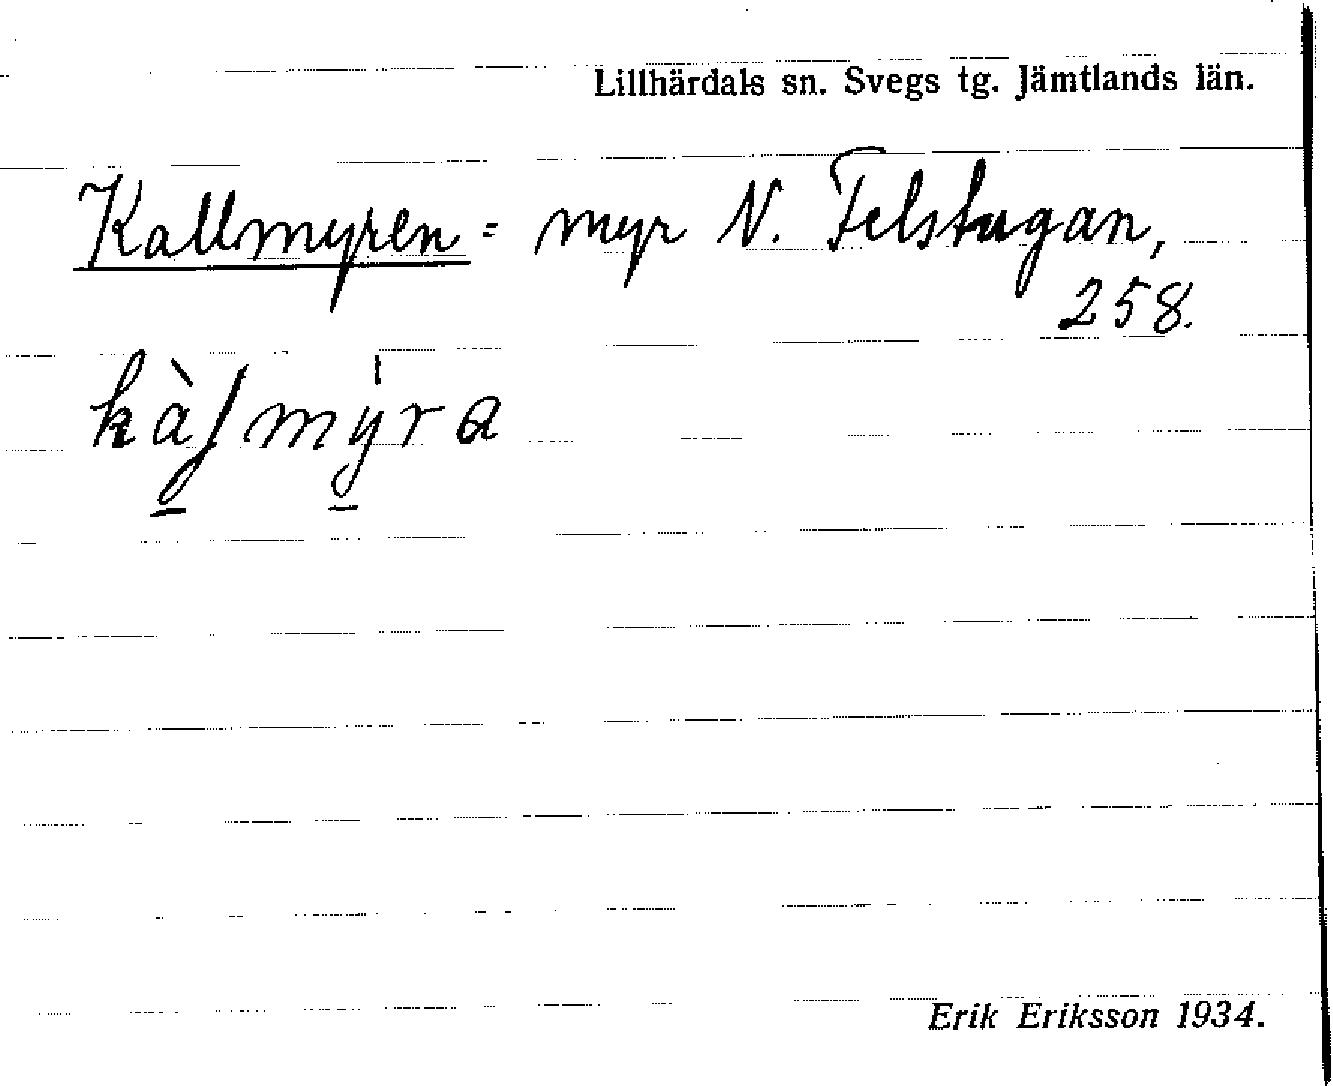 Lillhärdals sn. Svegs tg. Jämtlands län.
Kallmyren = myr N. Felstugan,
258.
Erik Eriksson 1934.